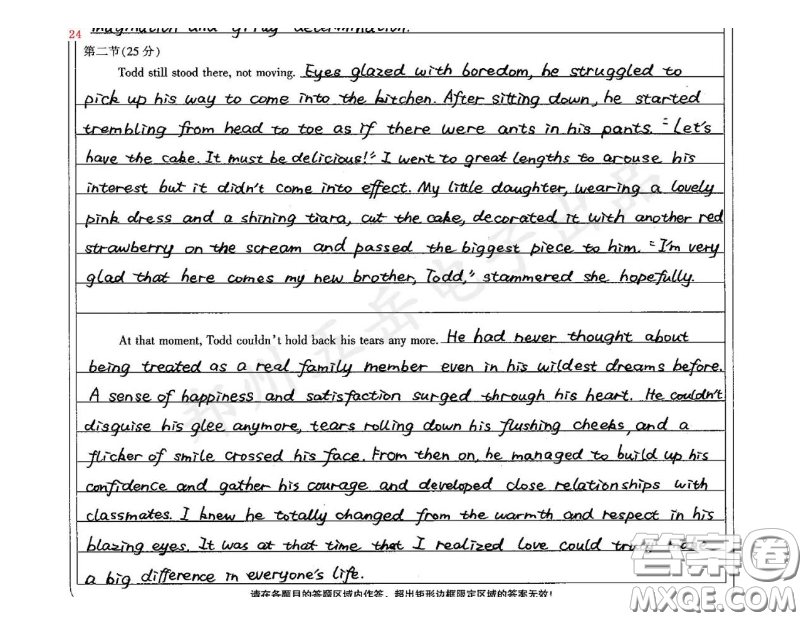 imagination and
24
第二节(25分)
Todd still stood there, not moving. Eyes glazed with boredom, he struggled to
pick up his way to come into the kitchen. After sitting down, he started
trembling from head to toe as if there were ants in his pants. "Let's
have the cake. It must be delicious!" I went to great lengths to arouse his
interest but it didn't come into effect. My little daughter, wearing a lovely
pink dress and a shining tiara, cut the cake, decorated it with another red
strawberry on the scream and passed the biggest piece to him. "I'm very
glad that here comes my new brother, Todd," stammered she hopefully.
At that moment, Todd couldn't hold back his tears any more. He had never thought about
being treated as a real family member even in his wildest dreams before.
A sense of happiness and satisfaction surged through his heart. He couldn't
disguise his glee anymore, tears rolling down his flushing cheeks, and a
flicker of smile crossed his face. From then on, he managed to build up his
confidence and gather his courage and developed close relationships with
classmates. I knew he totally changed from the warmth and respect in his
blazing eyes. It was at that time that I realized love could
a big difference in everyone's life.
请在各题目的答题区域内作答，超出矩形边框限定区域的答案无效!
答案圈